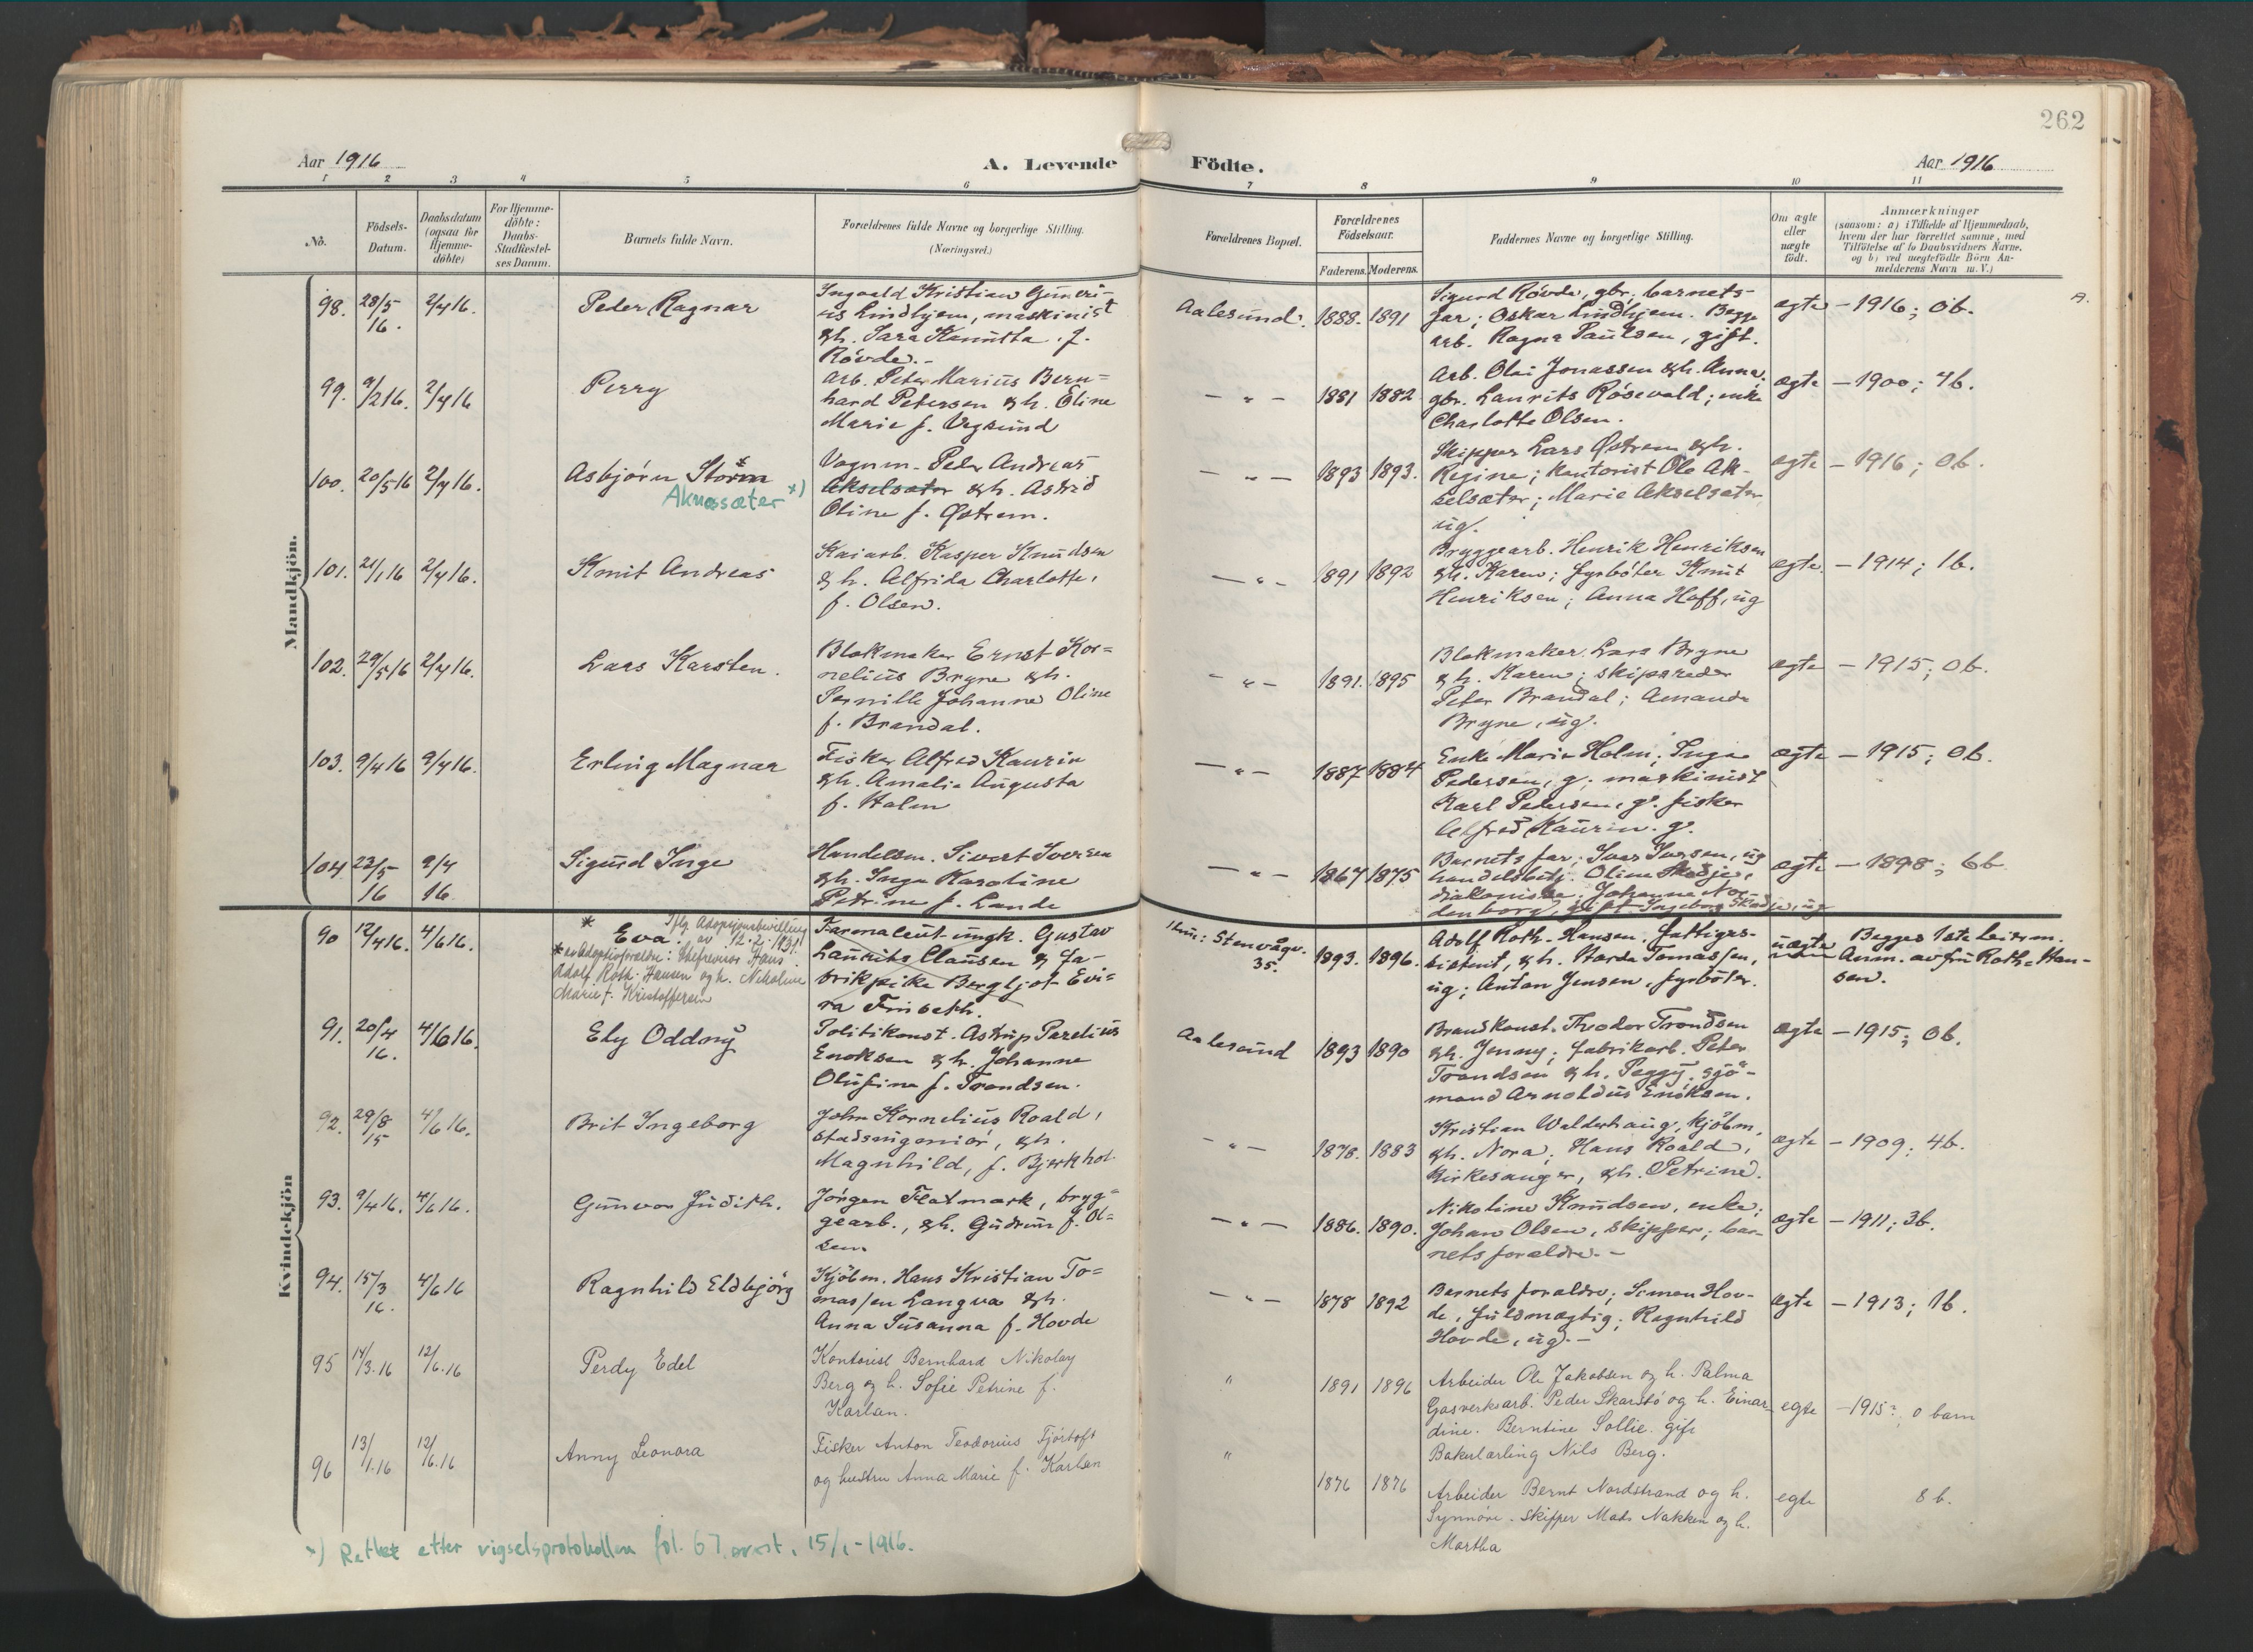 262
Aar 1916
A. Levende
Födte.
Aar 1916
1 2 3 4 5 6 7 8 9 10 11
No.
Födsels-
Datum.
Daabsdatum
(ogsaa for
Hjemme-
döbte)
For Hjemme-
döbte:
Daabs-
Stadfæstel-
ses Datum.
Barnets fulde Navn.
Forældrenes fulde Navne og borgerlige Stilling.
(Næringsvei.)
Forældrenes Bopæl.
Forældrenes
Födselsaar.
Faderens. Moderens.
Faddernes Navne og borgerlige Stilling.
Om ægte
eller
uægte
födt.
Anmærkninger
(saasom: a) i Tilfælde af Hjemmedaab,
hvem der har forrettet samme, med
Tilföielse af to Daabsvidners Navne.
og b) ved uegtefödte Börn An-
melderens Navn m. V.)
Mandkjön.
98. 28/5 16. 2/7 16.
Peder Ragnar
Ingvald Kristian Guneri-
us Lindhjem, maskinist
& h. Sara Kanutta f.
Rövde.-
Aalesund. 1888. 1891
Sigurd Rövde, gbr., barnets-
far; Oskar Lindhjem. Begge
arb. Ragna Paulsen, gift.
ægte - 1916; 0b.
A.
99. 9/2 16. 2/7 16
Perry
Arb. Peter Marius Bern=
hard Petersen & h. Oline
Marie f. Vegsund
- " - 1881 1882
Arb. Olai Jonassen & h. Anna,
gbr. Laurits Rösevold; enke
Charlotte Olsen.
ægte - 1900; 4b.
100. 20/5 16 2/7 16.
Asbjörn Storm
Aknessæter x)
Vognm. Peder Andreas
Akselsæter & h. Astrid
Oline f. Östrem.
- " - 1893 1893.
Skipper Lars Östrem & h.
Regine; kontorist Ole Ak-
selsæter; Marie Akselsæter,
ug.
ægte - 1916; 0b.
101. 21/1 16 2/7 16.
Knut Andreas
Kaiarb. Kasper Knudsen
& h. Alfrida Charlotte,
f. Olsen.
- " - 1891 1892
Bryggearb. Henrik Henriksen
& h. Karen; fyrböter Knut
Henriksen; Anna Hoff, ug
ægte. - 1914; 1b.
102. 29/5 16 2/7 16.
Lars Karsten.
Blokmaker Ernst Kor=
nelius Bryne & h.
Pernille Johanne Oline
f. Brandal.
- " - 1891. 1895
Blokmaker Lars Bryne
& h. Karen; skipsreder
Peter Brandal; Amanda
Bryne, ug.
ægte - 1915; 0b.
103. 9/4 16 9/7 16.
Erling Magnar
Fisker Alfred Kaurin
& h. Amalia Augusta
f. Holm
- " - 1887 1884
Enke Marie Holm; Inga
Pedersen, g; maskinist
Karl Pedersen, g. fisker
Alfred Kaurin. g.
ægte - 1915; 0b.
104. 23/5 16 9/7 16
Sigurd Inge
Handelsm. Sivert Iversen
& h. Inga Karoline
Petrine f. Lande
- " - 1867 1875
Barnets far; Ivar Iversen, ug
handelsbetj. Oline Skodje,
diakonisse; Johanne Nor-
denborg, gift Ingeborg Skodje, ug
ægte - 1898; 6b
Kvindekjön
90 12/4 16. 4/6 16.
* Eva. Iflg. Adopsjonsbevilling
av 12.2.1931.
* Adoptivforældre: Chefrevisor Hans
Adolf Roth-Hansen og h. Nikoline
Marie f. Kristoffersen
Faremaleut. ungk. Gustav
Laurits Clausen & fa-
brikpike Bergljot Evi-
ra Finseth.
Stenvågv.
35.
1893. 1896.
Adolf Roth-Hansen, fattigas-
sistent, & h. Harda Tomassen,
ug; Anton Jensen, fyrböter.
uægte
Begges 1ste leierm.
Anm. av fru Roth-Han-
sen.
91. 20/4 16. 4/6 16.
Ely Oddny
Politikonst. Astrup Parelius
Enoksen & h. Johanne
Olufine f. Trondsen.
Aalesund 1893 1890
Brandkonst. Theodor Trondsen
& h. Jenny; fabrikarb. Peter
Trondsen & h. Peggy. sjö-
mand Arnoldus Enoksen.
ægte - 1915; 0b.
92. 29/8 15 4/6 16.
Brit Ingeborg
John Kornelius Roald,
stadsingeniör, & h.
Magnhild, f. Bjerkhol
- " - 1878. 1883
Kristian Walderhaug, kjöbm.
& h. Nora; Hans Roald,
kirkesanger, & h. Petrine.
ægte - 1909; 4b.
93. 9/4 16. 4/6 16.
Gunvor Judith.
Jörgen Flatmark, bryg=
gearb., & h. Gudrun f. Ol=
sen
- " - 1886. 1890.
Nikoline Knudsen, enke;
Johan Olsen, skipper; bar-
nets forældre.-
ægte - 1911; 3b.
94. 15/3 16. 4/6 16
Ragnhild Eldbjörg
Kjöbm. Hans Kristian To=
massen Langva & h.
Anna Susanna f. Hovde
- " - 1878 1892
Barnets forældre; Simen Hov-
de, fuldmægtig; Ragnhild
Hovde, ug.-
ægte - 1913; 1b.
95 14/3.16 12/6.16
Perdy Edel
Kontorist Bernhard Nikolay
Berg og h. Sofie Petrine f.
Karlsen.
" 1891 1896
Arbeider Ole Jakobsen og h. Palma
Gasverksarb. Peder Skarstö og h. Einar-
dine. Berntine Sollie. gift
Bakerlærling Nils Berg.
egte - 1915; 0 barn
96 13/1.16 12/6.16
Anny Leonora
Fisker Anton Teodorius Fjörtoft
og hustru Anna Marie f. Karlsen
" 1876 1876
Arbeider Bernt Nordstrand og h.
Synnöve. Skipper Mads Nakken og h.
Martha
egte 8 b.
x) Rettet etter vigselsprotokollen fol. 67. 15/1-1916.